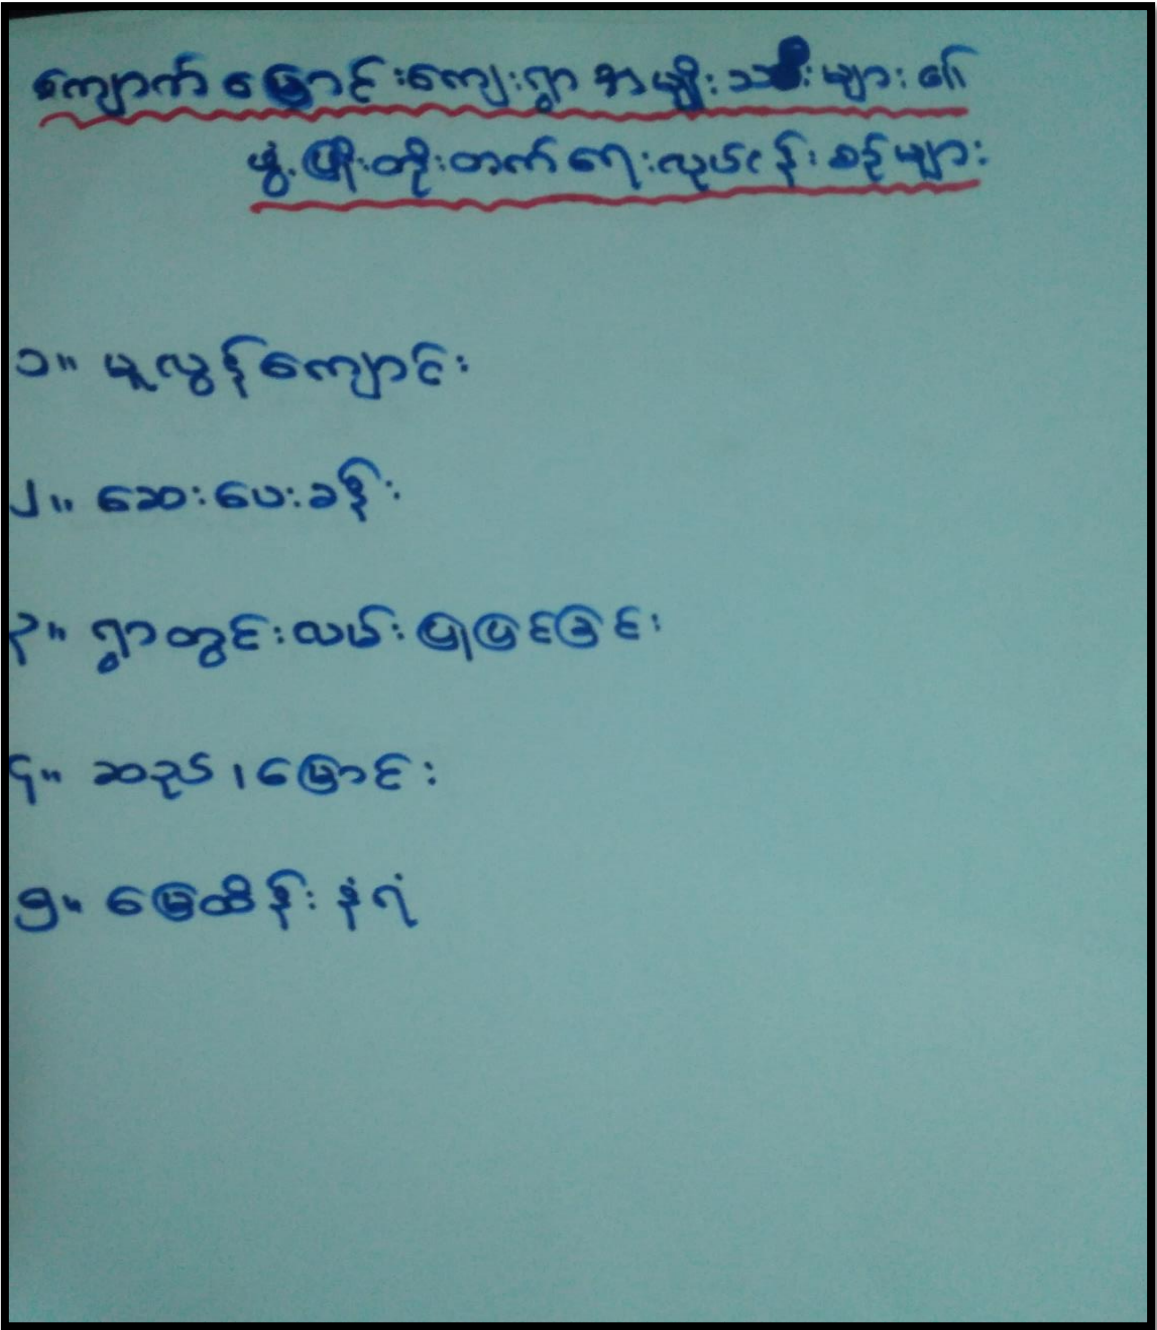 ကျောက်မြောင်းကျေးရွာ အမျိုးသမီးများ၏
ဖွံ့ဖြိုးတိုးတက်ရေးလုပ်ငန်းစဉ်များ
၁။ မူလွန်ကျောင်း
၂။ ဆေးပေးခန်း
၃။ ရွာတွင်းလမ်းပြုပြင်ခြင်း
၄။ ဆည်၊ မြောင်း
၅။ မြေထိန်းနံရံ